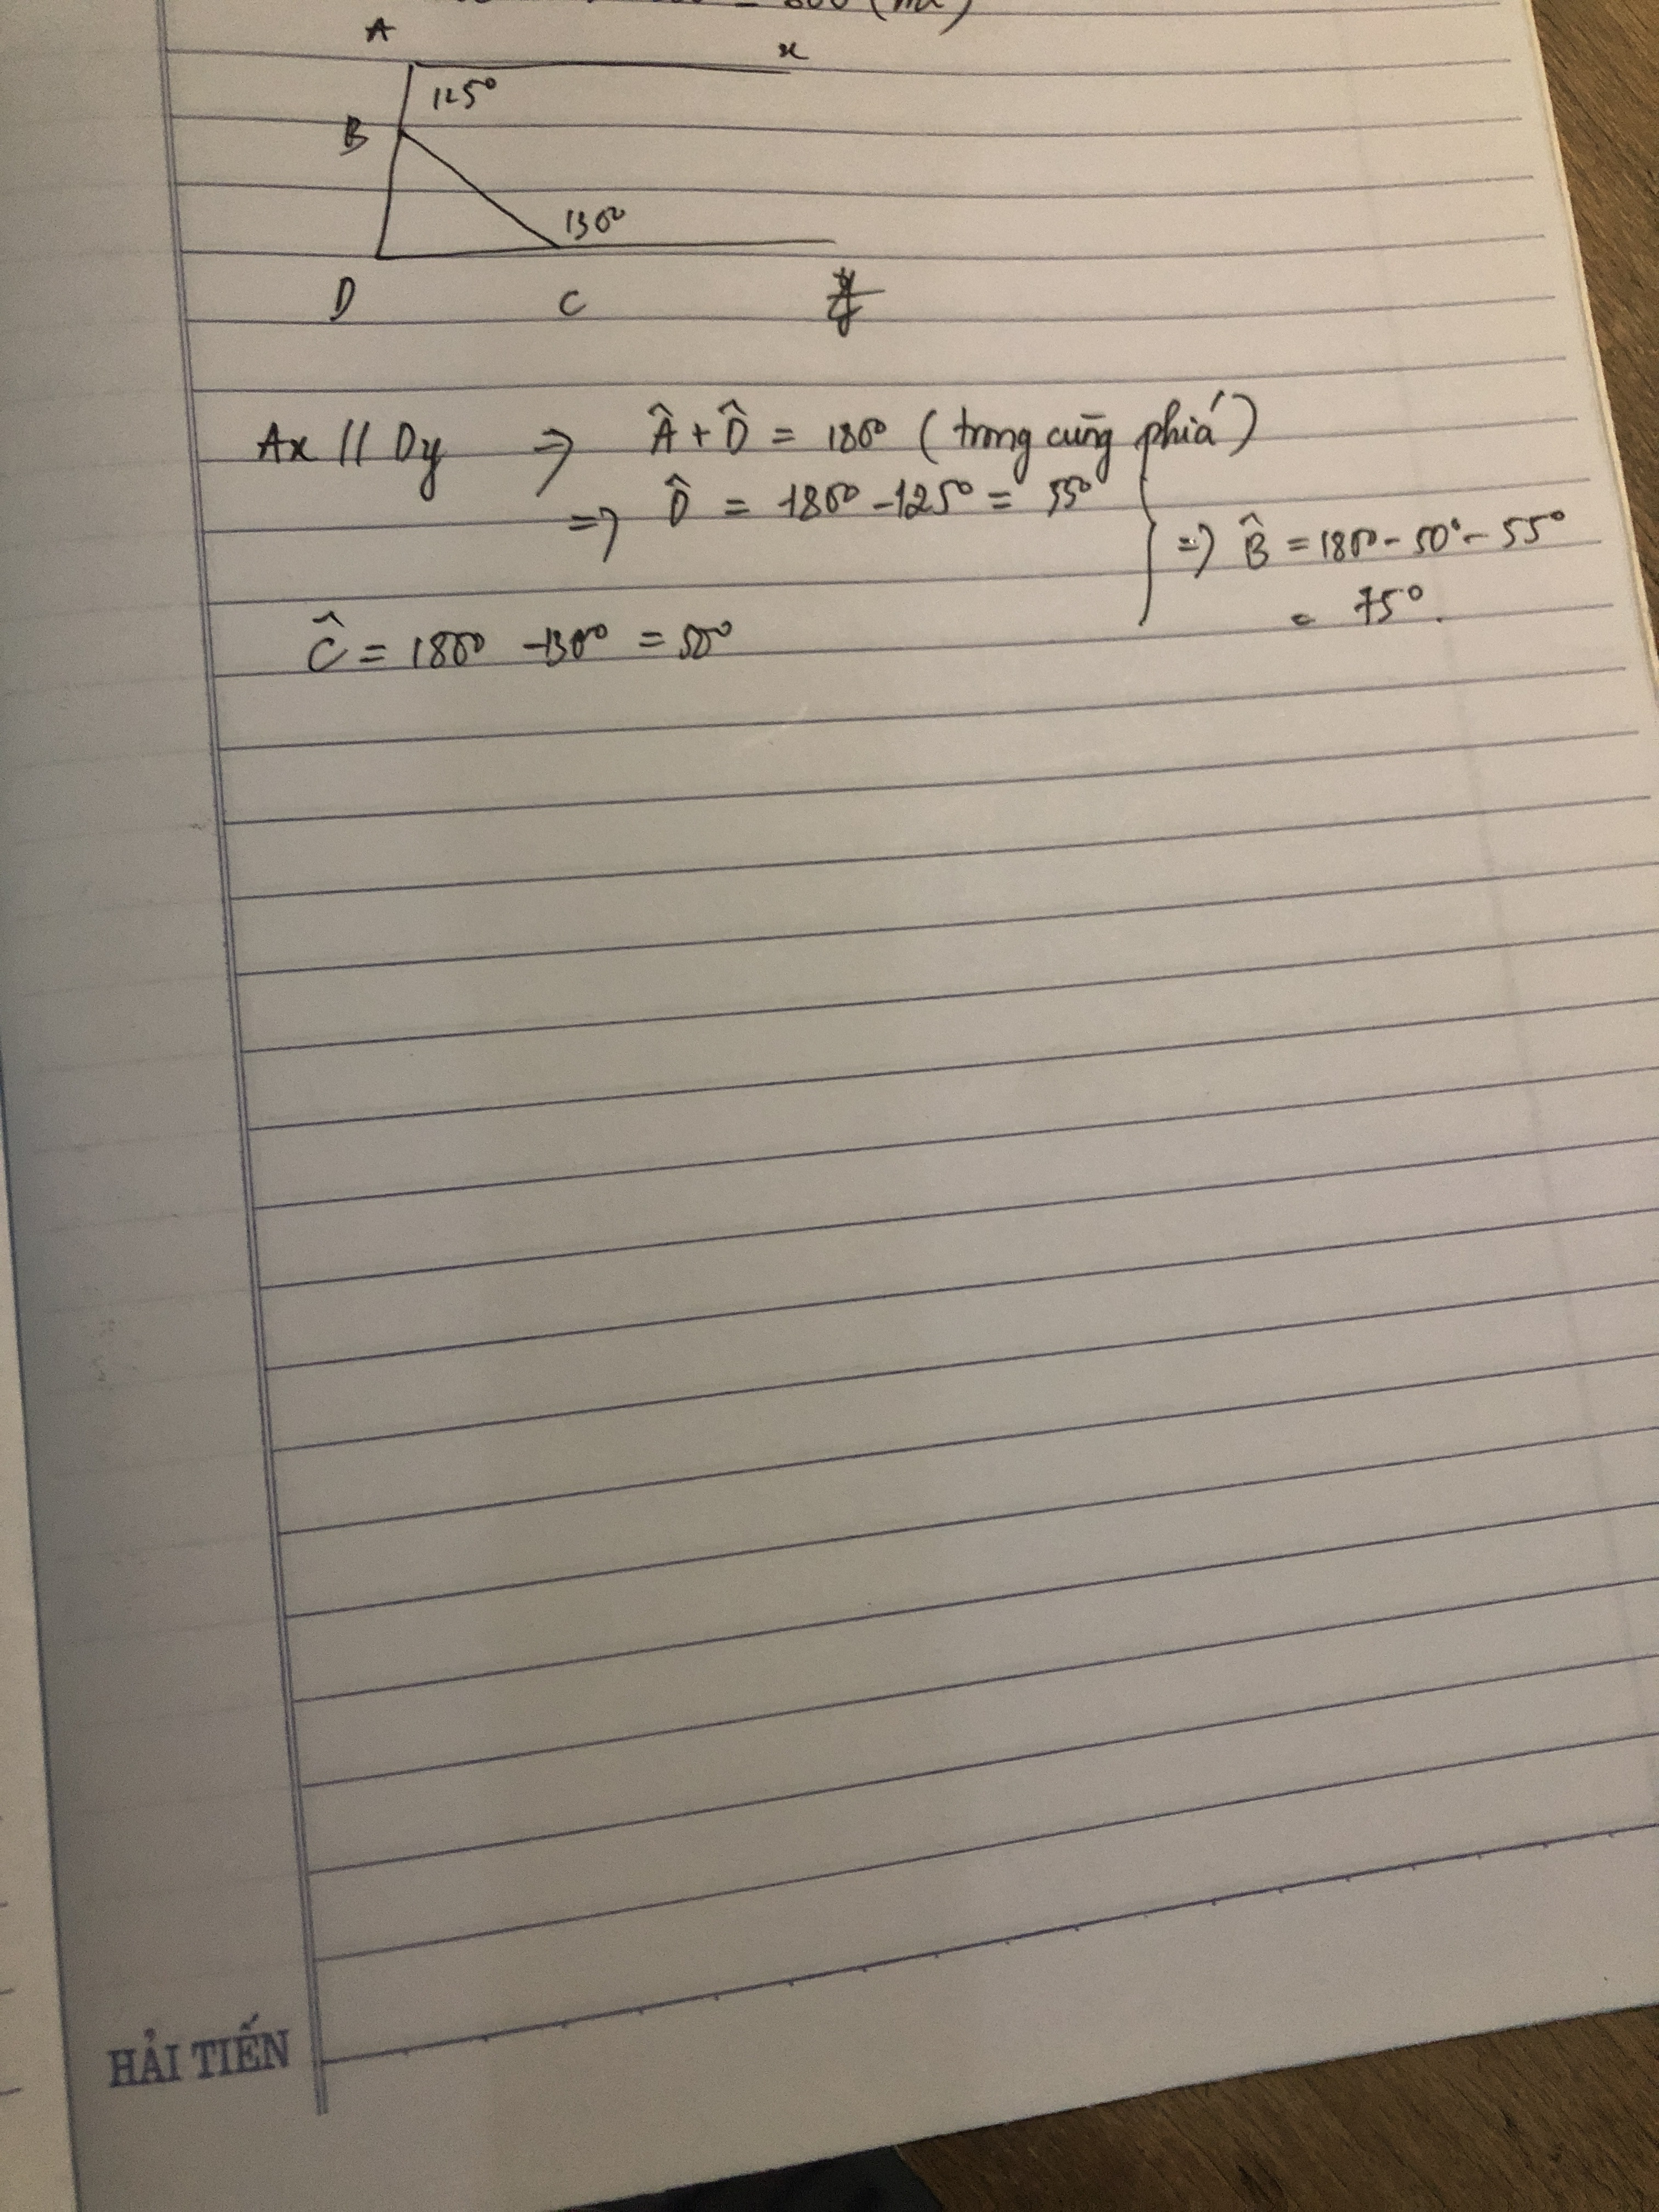 = 800 (ml)
A x
125°
B
130°
D C y
Ax // Dy ⇒ Â + D̂ = 180° (trong cùng phía)
⇒ D̂ = 180° - 125° = 55°
⇒ B̂ = 180° - 50° - 55°
= 75°.
Ĉ = 180° - 130° = 50°
HẢI TIẾN